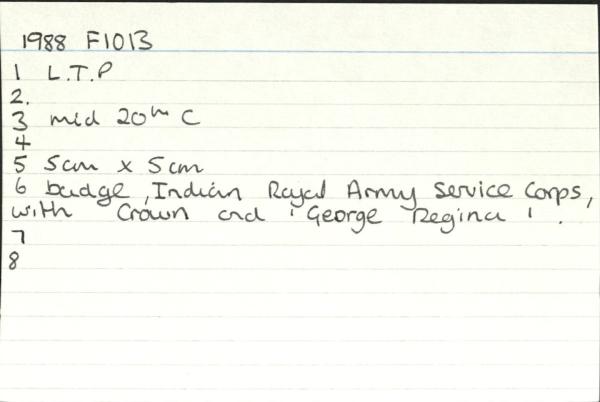 1988 F1013
1 L.T.P
2.
3 mid 20th C
4
5 5cm x 5cm
6 badge, Indian Royal Army Service Corps,
with Crown and 'George Regina'.
7
8